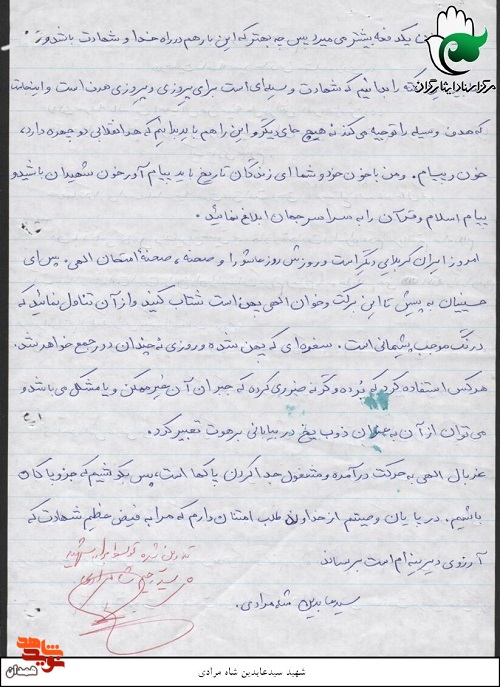 یکدفعه بیشتر نمی میرد پس چه بهتر که این بار هم در راه خدا و شهادت باشد و
مرکز اسناد ایثارگران
نکته را بدانیم که شهادت وسیله ای است برای پیروزی و پیروزی هدف است و اینجاست
که هدف وسیله را توجیه می کند نه هیچ جای دیگر و این را هم باید بدانیم که هر انقلابی دو چهره دارد،
خون و پیام. و من با خون خود و شما ای زندگان تاریخ باید پیام آور خون شهیدان باشید و
پیام اسلام و قرآن را به سراسر جهان ابلاغ نمائید.
امروز ایران کربلایی دیگر است و روزش روز عاشورا و صحنه، صحنهٔ امتحان الهی. پس ای
حسینیان به پیش تا این برکت و خوان الهی پهن است شتاب کنید و از آن تناول نمائید که
درنگ موجب پشیمانی است. سفره ای که پهن شده و روزی نه چندان دور جمع خواهد شد.
هر کس استفاده کرد که بُرده و گرنه ضرری کرده که جبران آن غیر ممکن و یا مشکل می باشد و
می توان از آن به عنوان ذوب یخ در بیابانی برهوت تعبیر کرد.
غربال الهی به حرکت درآمده و مشغول جدا کردن پاکها است، پس بکوشیم که جزو پاکان
باشیم. در پایان وصیتم از خداوند طلب امتنان دارم که مرا به فیض عظیم شهادت که
آرزوی دیرینه ام است برساند
تدوین شده توسط برادر شهید
سید شاه مرادی
سید عابدین شاه مرادی.
نوید شاهد
همدان
شهید سیدعابدین شاه مرادی